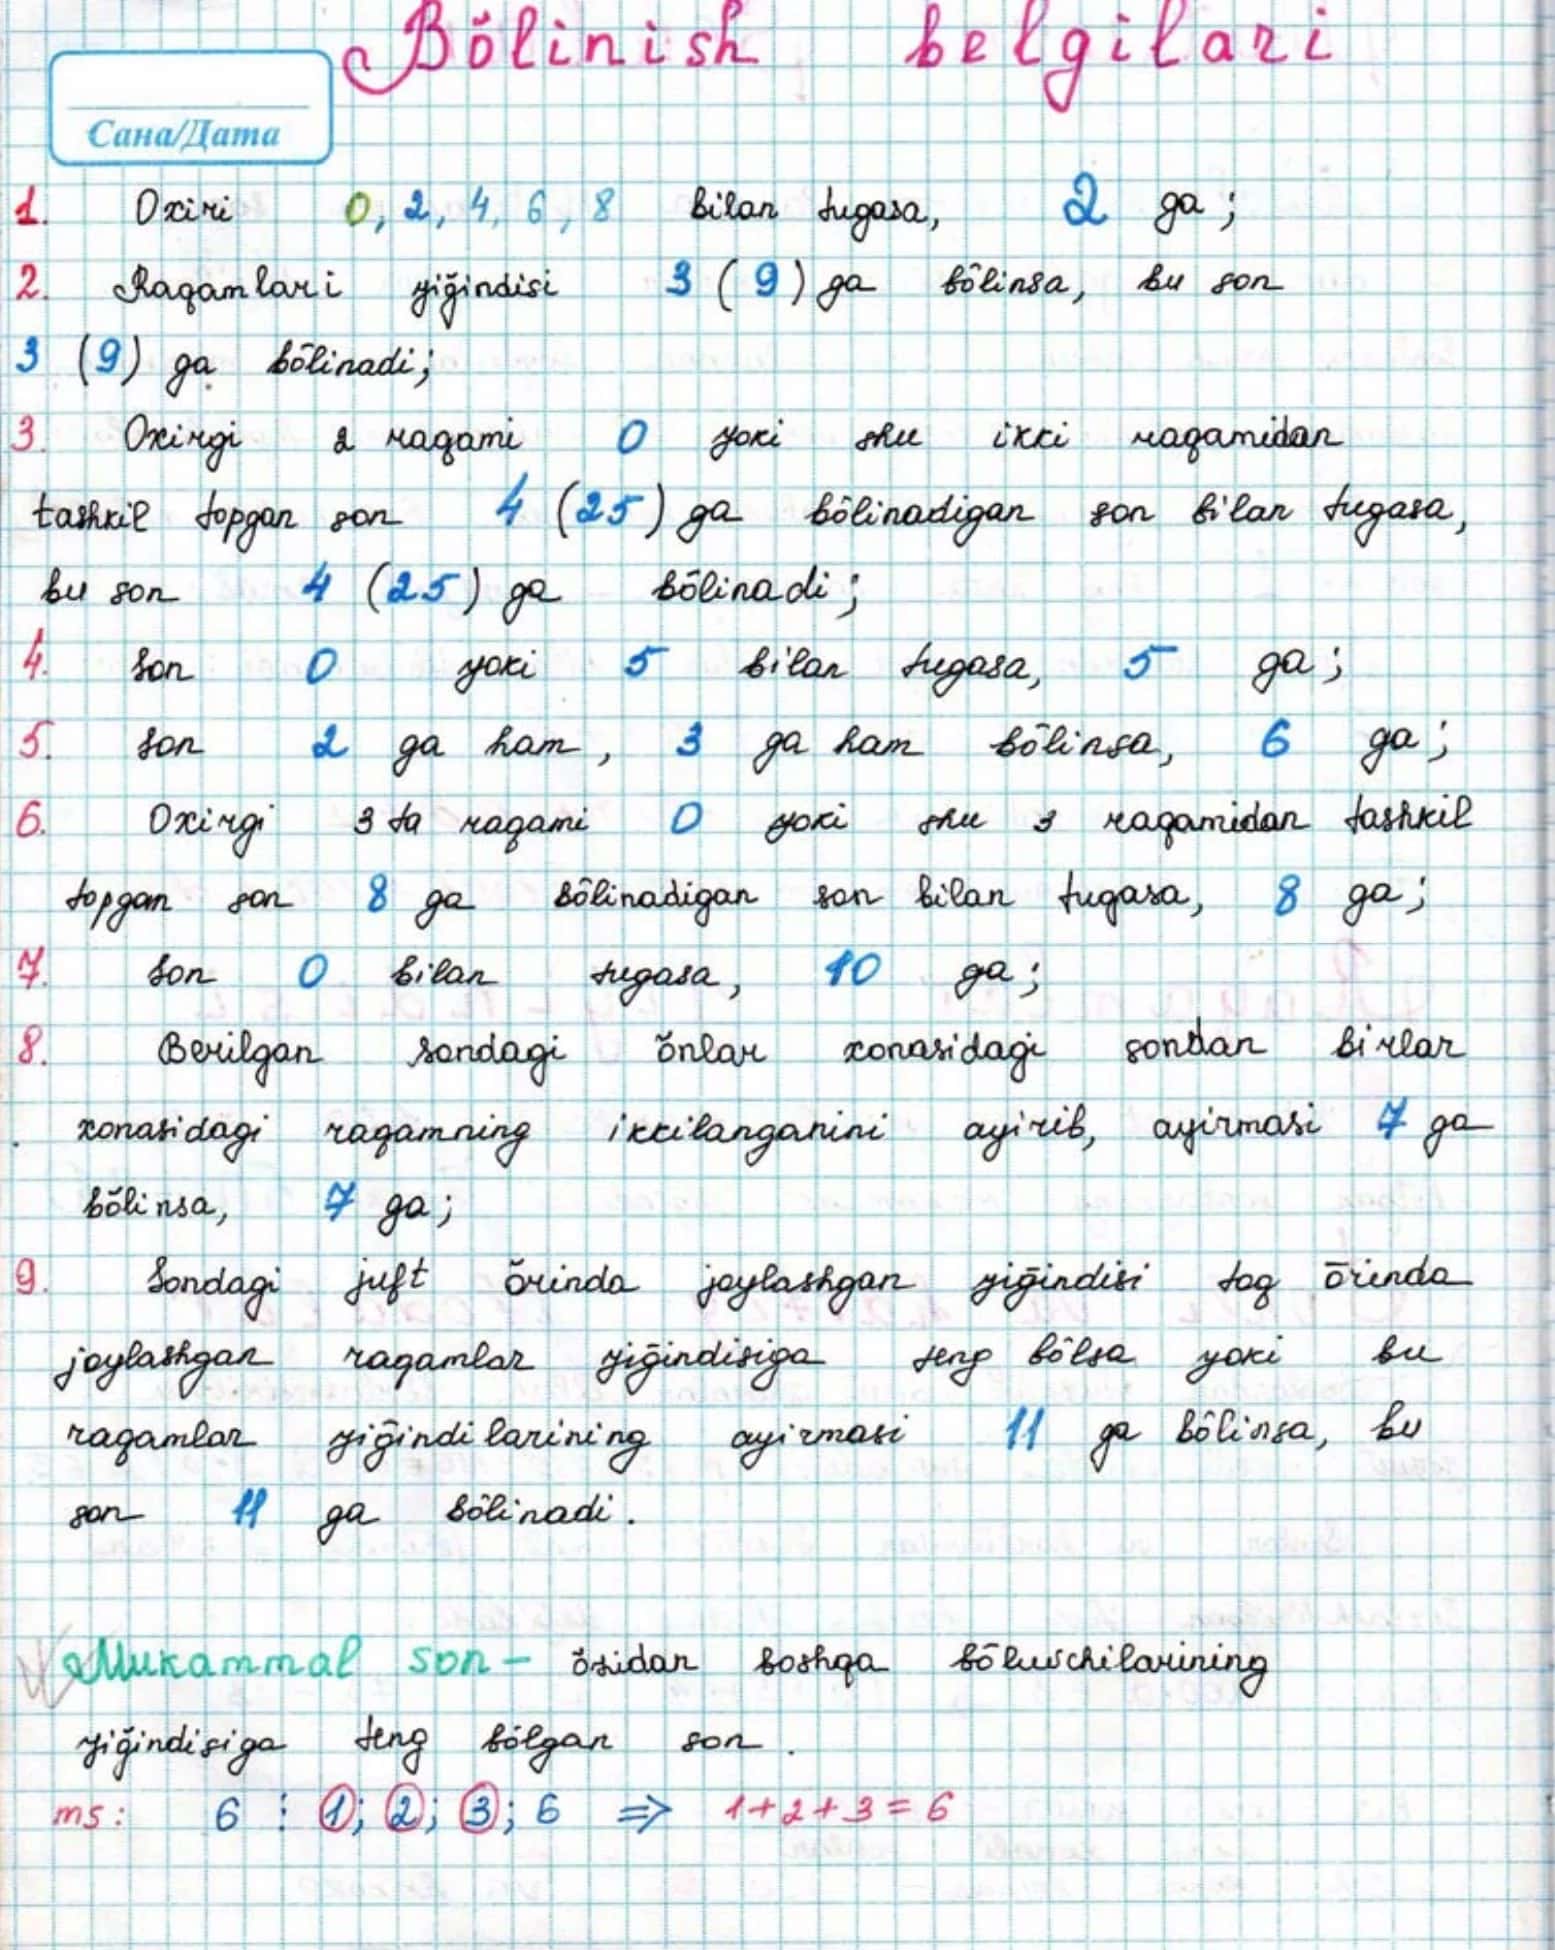 Bŏlinish belgilari
Сана/Дата
1. Oxiri 0, 2, 4, 6, 8 bilan tugasa, 2 ga;
2. Raqamlari yiğindisi 3 (9) ga bōlinsa, bu son
3 (9) ga bōlinadi;
3. Oxirgi 2 raqami 0 yoki shu ikki raqamidan
tashkil topgan son 4 (25) ga bōlinadigan son bilan tugasa,
bu son 4 (25) ga bōlinadi;
4. Son 0 yoki 5 bilan tugasa, 5 ga;
5. Son 2 ga ham, 3 ga ham bōlinsa, 6 ga;
6. Oxirgi 3 ta raqami 0 yoki shu 3 raqamidan tashkil
topgan son 8 ga bōlinadigan son bilan tugasa, 8 ga;
7. Son 0 bilan tugasa, 10 ga;
8. Berilgan sondagi ŏnlar xonasidagi sondan birlar
xonasidagi raqamning ikkilanganini ayirib, ayirmasi 7 ga
bŏlinsa, 7 ga;
9. Sondagi juft ōrinda joylashgan yiğindisi toq ōrinda
joylashgan raqamlar yiğindisiga teng bōlsa yoki bu
raqamlar yiğindilarining ayirmasi 11 ga bōlinsa, bu
son 11 ga bōlinadi.
Mukammal son – ŏzidan boshqa bōluvchilarining
yiğindisiga teng bōlgan son.
ms: 6 ⋮ 1; 2; 3; 6 ⇒ 1+2+3=6